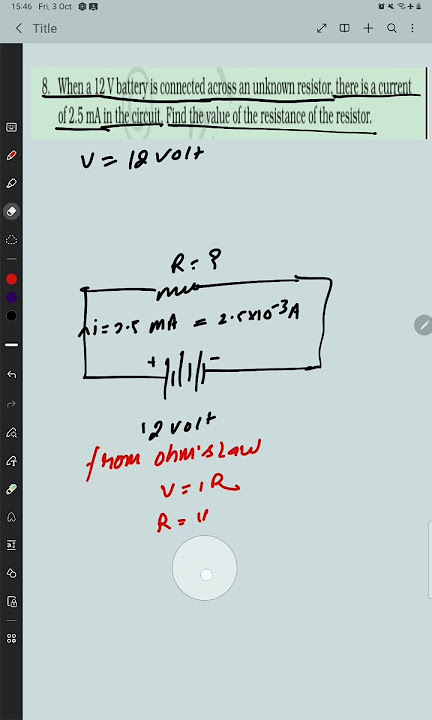 15:46 Fri, 3 Oct
Title
8. When a 12 V battery is connected across an unknown resistor, there is a current
of 2.5 mA in the circuit. Find the value of the resistance of the resistor.
V = 12 volt
R = ?
i = 2.5 mA = 2.5x10-3A
+ -
12 volt
from ohm's law
V = iR
R =